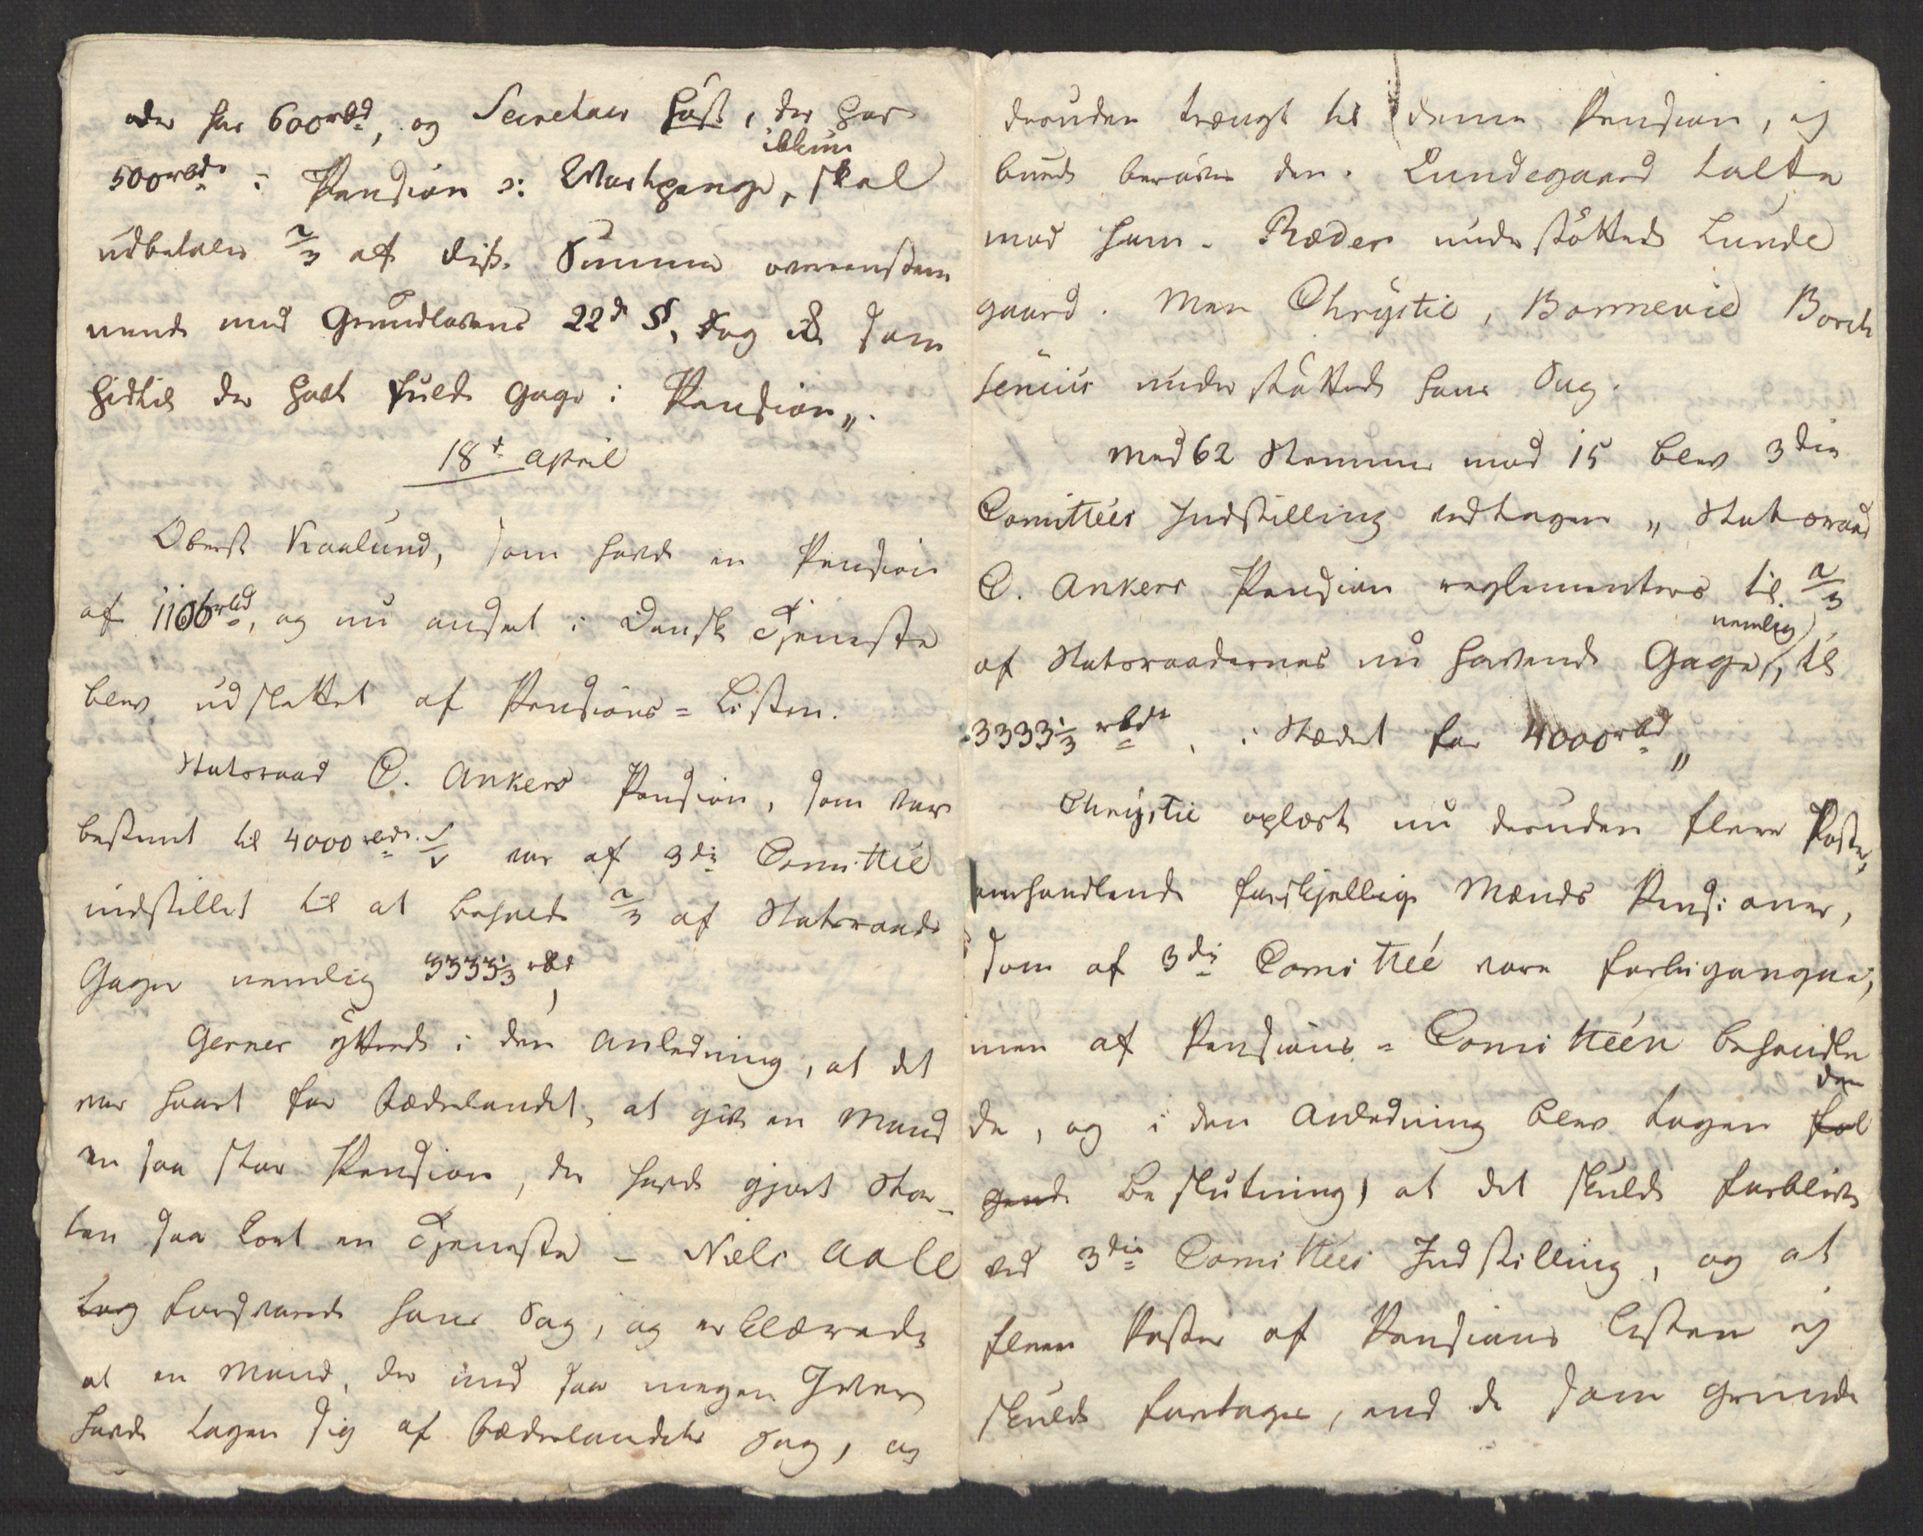 der har 600 rbd, og Secretair Høst, der har
ikkun
500 rbd i Pension ɔ: Wartpenge, skal
udbetales 2/3 af diss. Summer overeenstem
mende med Grundlovens 22d §, dog som
hidtil der havt fuld Gage i Pension„.
18d April
Oberst Kaalund, som havde en Pension
af 1106 rbd, og nu ansat i Dansk Tjeneste
blev udslettet af Pensions-Listen.
Statsraad C. Ankers Pension, som var
bestemt til 4000 rbd. var af 3die Comittée
indstillet til at beholde 2/3 af Statsraads
Gage nemlig 3333⅓ rbd,
Gerner yttrede i den Anledning, at det
var haart for Fædrelandet, at give en Mand
en saa stor Pension, der havde gjort Sta-
ten saa kort en Tjeneste – Niels Aall
tog forsvarede hans Sag, og erklærede
at en Mand, der med saa megen Iver
havde tagen sig af Fædrelandets Sag, og
desuden trængt til denne Pension, ej
burde berøves den. Lundegaard talte
mod ham. Ræder understøttede Lunde
gaard. Men Chrystie, Bonnevie Borch
senius understøttede hans Sag.
Med 62 Stemmer mod 15 blev 3die
Comittées Indstilling vedtagen „Statsraad
C. Ankers Pension reglementeres til 2/3
nemlig
af Statsraadernes nu havende Gage, til
3333⅓ rbd. i Stædet for 4000 rbd„
Chrystie oplæste nu desuden flere Poster,
omhandlende forskjellige Mænds Pensioner,
som af 3die Comittée vare forbigangne,
men af Pensions-Comittéen behandle
den
de, og i den Anledning blev tagen føl
gende Beslutning, at det skulde forblive
ved 3die Comittées Indstilling, og at
fleere Poster af Pensions Listen ej
skulde foretages, end de som grunde